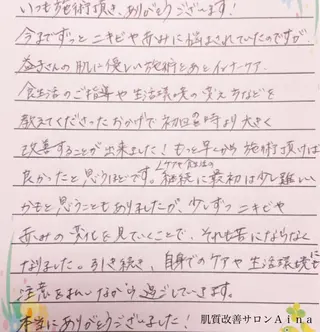 いつも施術頂き、ありがとうございます!
今までずっとニキビや赤みに悩まされていたのですが
益子さんの肌に優しい施術とあとインナーケア、
食生活のご指導や生活環境の変え方などを
教えてくださったおかげで初回の時より大きく
改善することが出来ました!もっと早くから施術頂けば
良かったと思うほどです。継続に最初は少し難しい
かもと思うこともありましたが、少しずつニキビや
赤みの変化を見ていくことで、それも苦にならなく
なりました。引き続き、自身でのケアや生活環境にも
注意をはらいながら過ごしていきます。
本当にありがとうございました!
肌質改善サロンAina